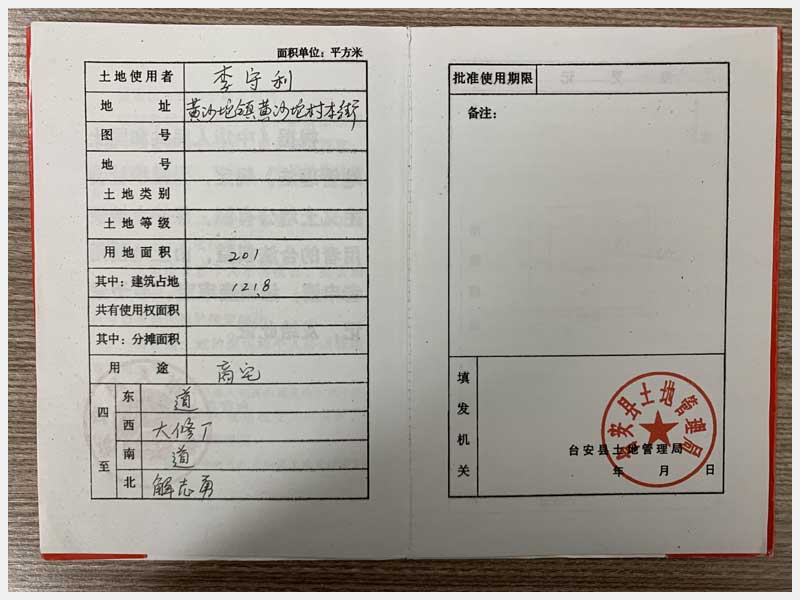 面积单位：平方米
土地使用者 李守利
地 址 黄沙坨镇黄沙坨村本街
图 号
地 号
土地类别
土地等级
用地面积 201
其中：建筑占地 121.8
共有使用权面积
其中：分摊面积
用 途 商宅
四至
东 道
西 大修厂
南 道
北 解志勇
批准使用期限
备注：
填发机关
台安县土地管理局
台安县土地管理局
年 月 日